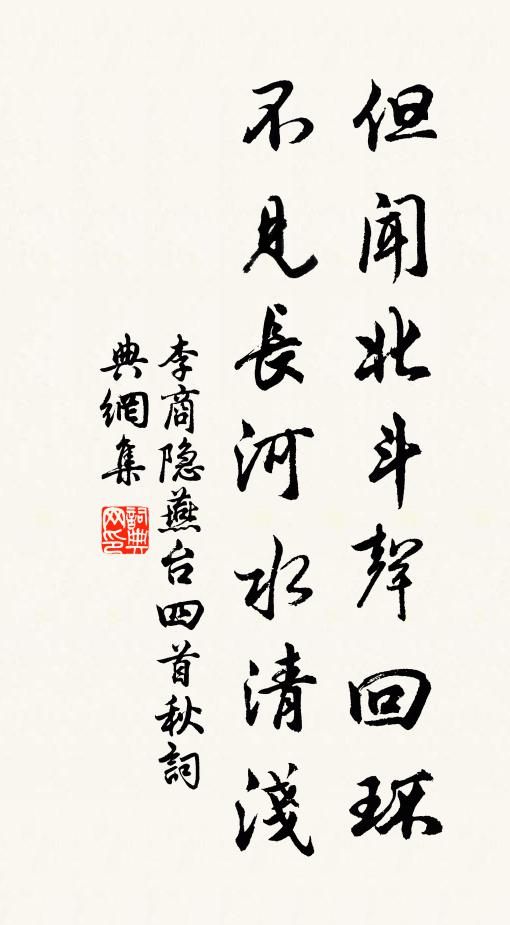 但聞北斗聲回环
不見長河水清淺
李商隐燕台四首秋詞
典網集
詞典网印